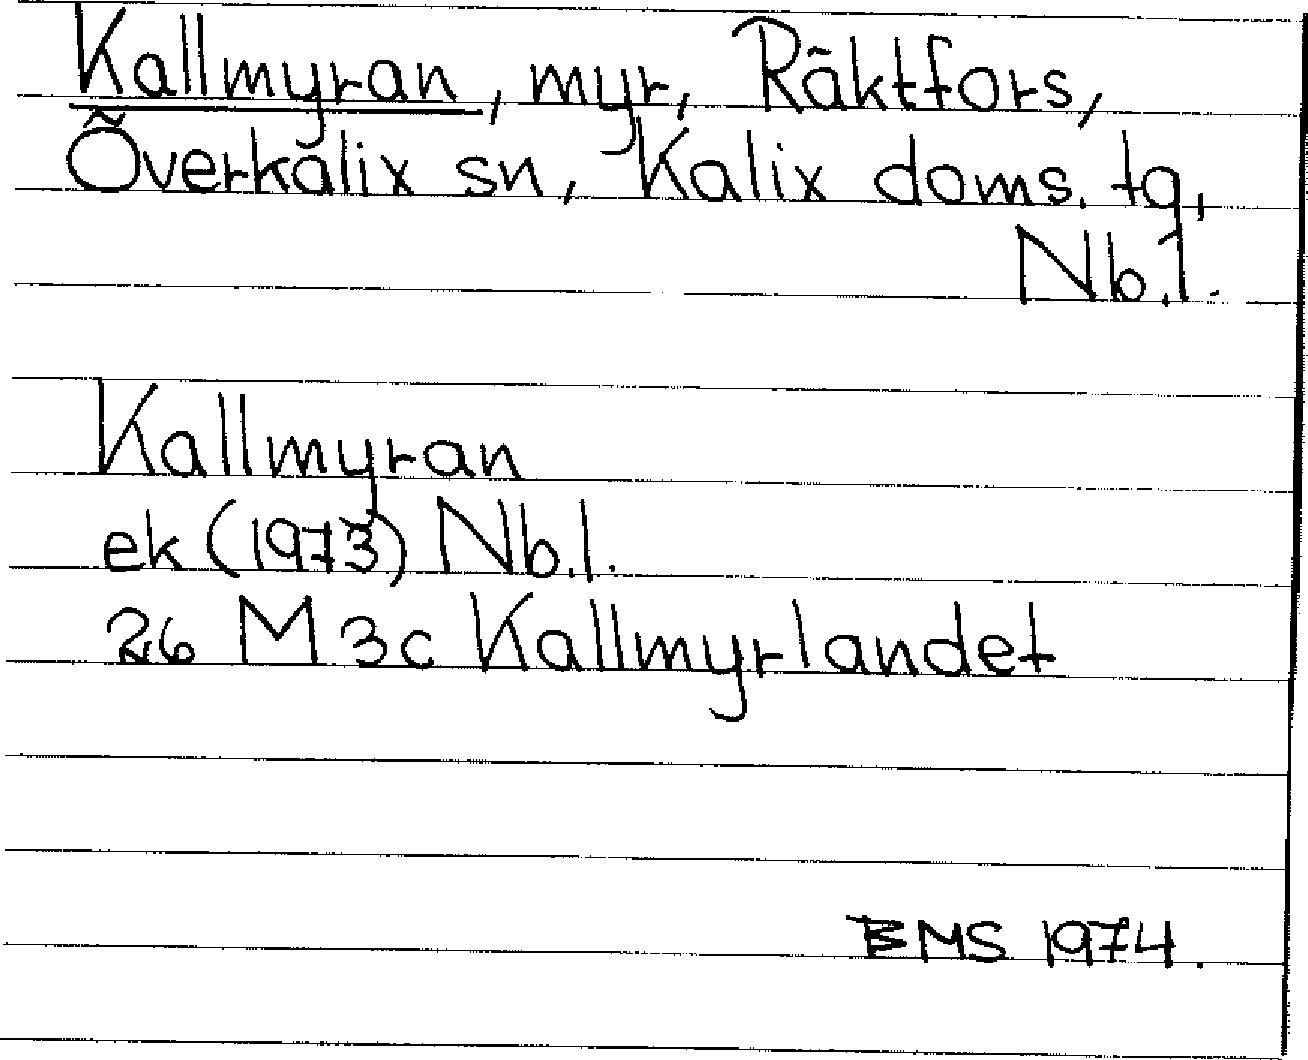 Kallmyran, myr, Räktfors,
Överkalix sn, Kalix doms. tg,
Nb.l.
Kallmyran
ek (1973) Nb.l.
26 M 3c Kallmyrlandet
BMS 1974.